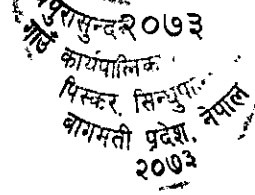 पुरासुन्दर २०७३
गाउँ कार्यपालिक
पिस्कर, सिन्धुपा
बागमती प्रदेश, नेपाल
२०७३